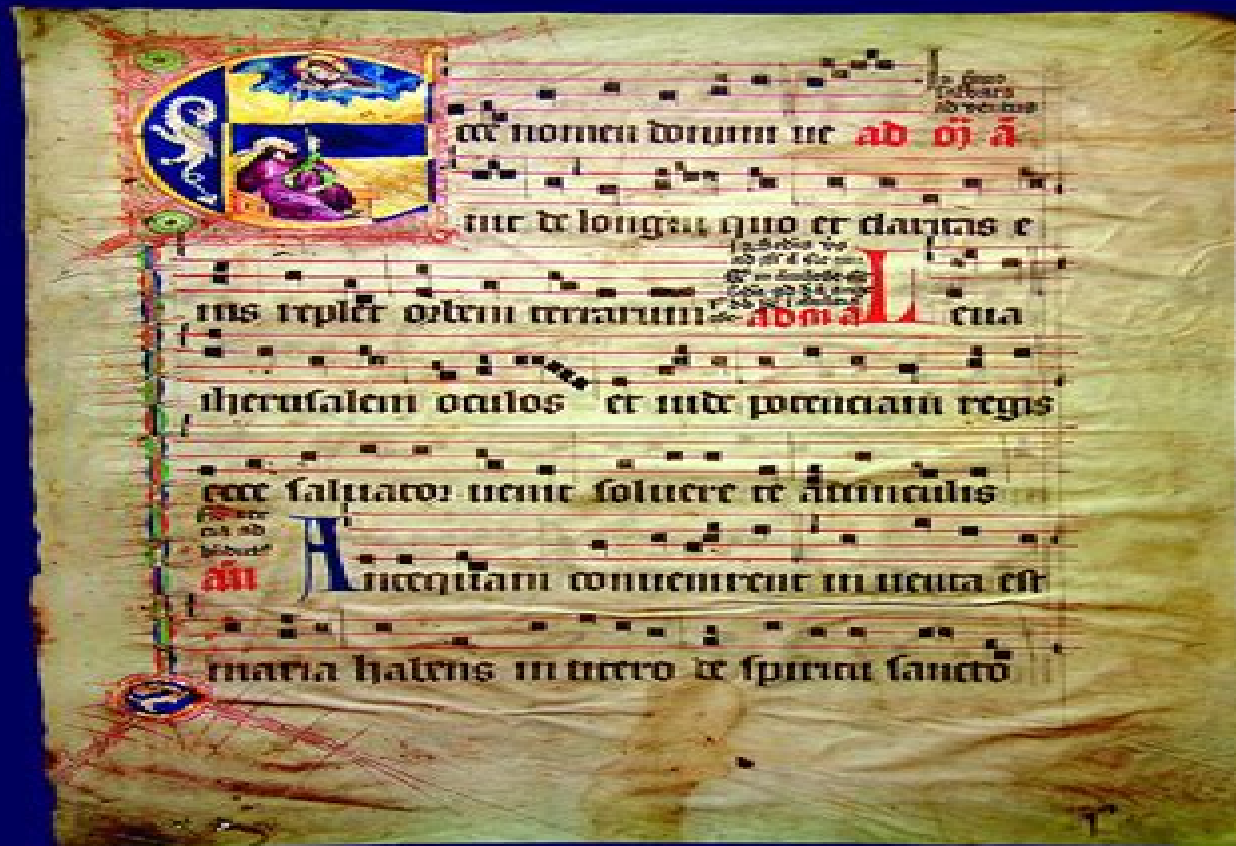 Ecce nomen domini ue ad
nit de longin quo et claritas e
ius replet orbem terrarum L eua
iherusalem oculos et uide potenciam regis
ecce saluator uenit soluere te a uinculis
Antequam conuenirent inuenta est
maria habens in utero de spiritu sancto